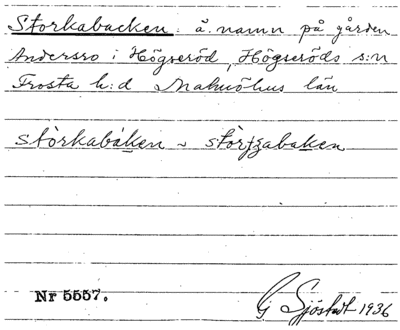 Storkabacken: ä. namn på gården
Andersro i Högseröd, Högseröds s:n
Frosta h:d Malmöhus län
storkabaken ~ storʃzabaken
Nr 5557.
G Sjöstedt 1936